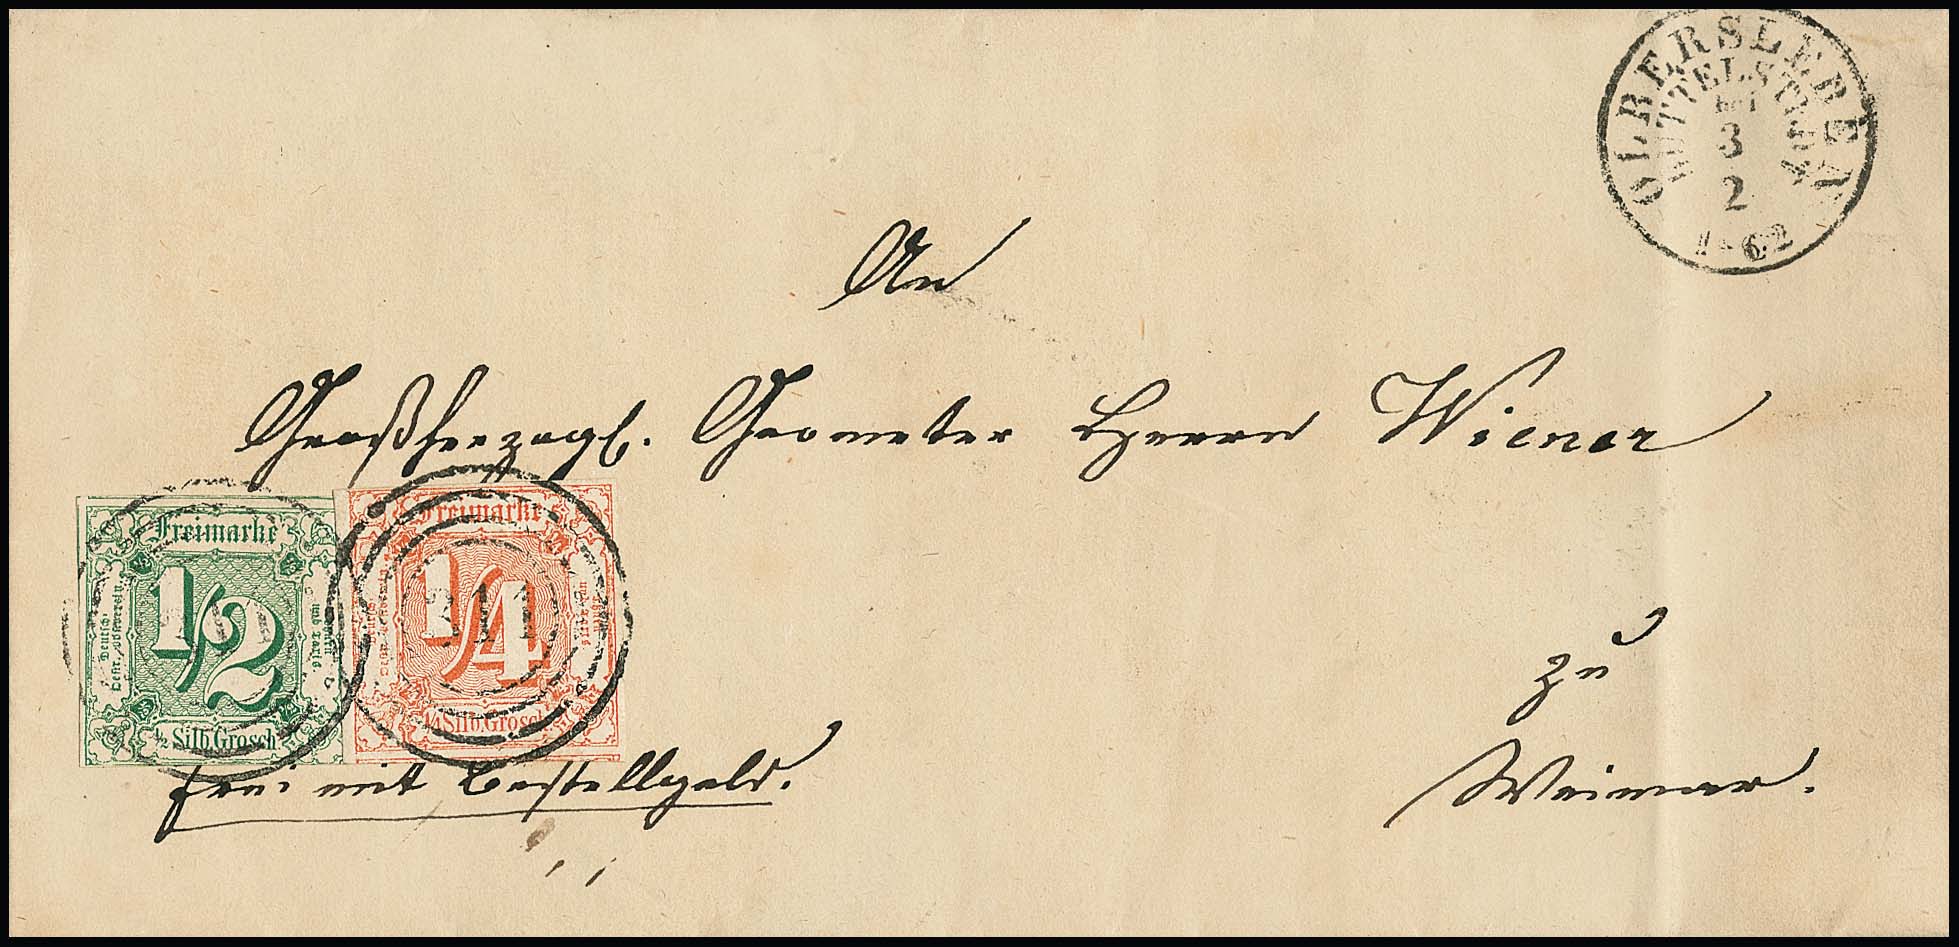 OLBERSLEBEN
BUTTELSTEDT
bei
3
2
1862
An
Großherzogl. Geometer Herrn Wiener
Freimarke
1/2
Deutsch
Oestr. Postverein
1/2 Silb. Grosch.
Freimarke
1/4
311
1/4 Silb. Grosch.
zu
Weimar.
frei mit Bestellgeld.